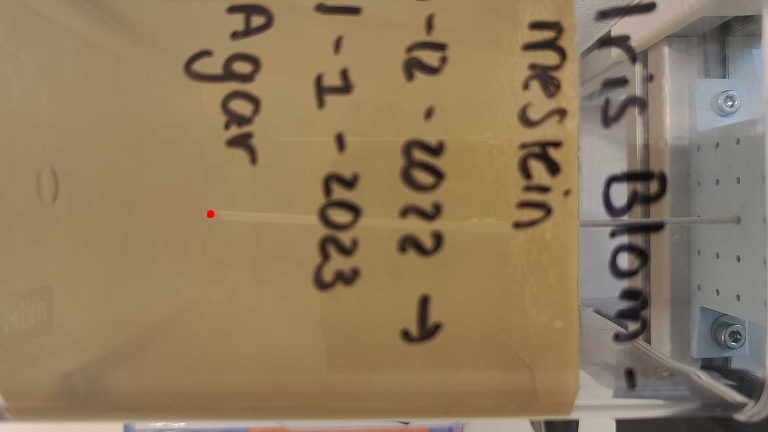 Iris Blom -
messtein
-12-2022 →
1-1-2023
Agar